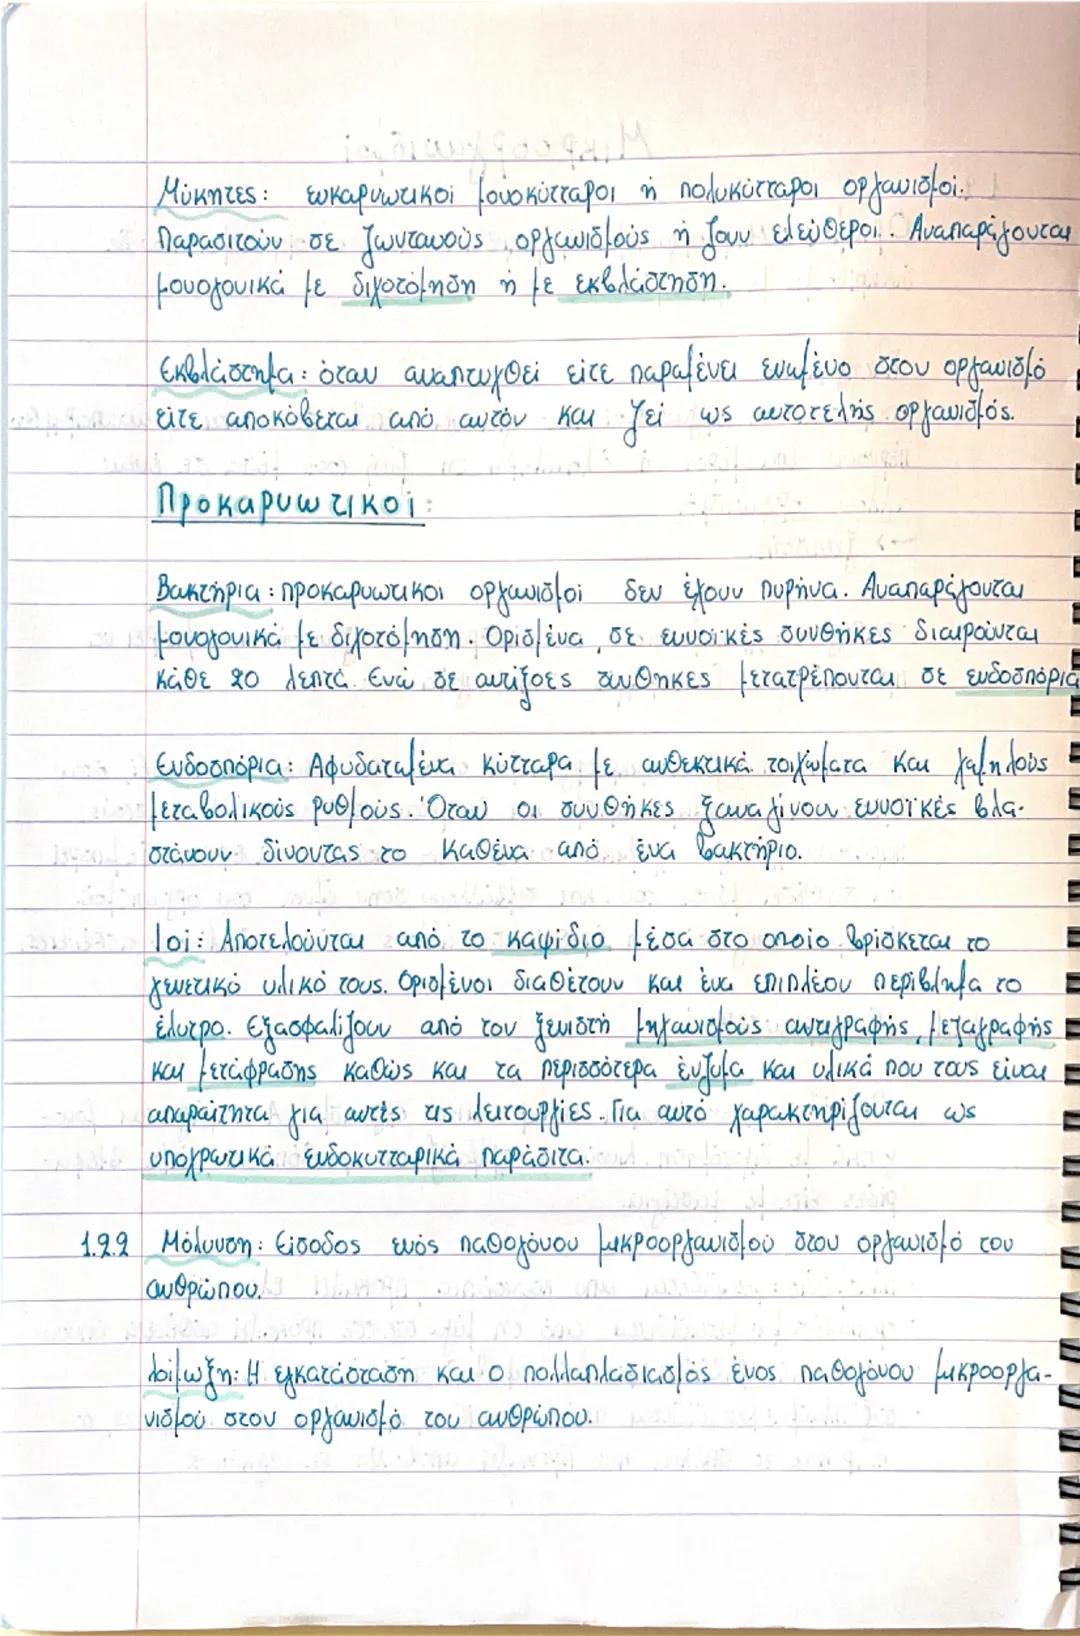 Μύκητες: ευκαρυωτικοί μονοκύτταροι ή πολυκύτταροι οργανισμοί.
Παρασιτούν σε ζωντανούς οργανισμούς ή ζουν ελεύθεροι. Αναπαράγονται
μονογονικά με διχοτόμηση ή με εκβλάστηση.
Εκβλάστημα: όταν αναπτυχθεί είτε παραμένει ενωμένο στον οργανισμό
είτε αποκόβεται από αυτόν και ζεί ως αυτοτελής οργανισμός.
Προκαρυωτικοί:
Βακτήρια: προκαρυωτικοί οργανισμοί δεν έχουν πυρήνα. Αναπαράγονται
μονογονικά με διχοτόμηση. Ορισμένα σε ευνοϊκές συνθήκες διαιρούνται
κάθε 20 λεπτά. Ενώ σε αντίξοες συνθήκες μετατρέπονται σε ενδοσπόρια
Ενδοσπόρια: Αφυδατωμένα κύτταρα με ανθεκτικά τοιχώματα και χαμηλούς
μεταβολικούς ρυθμούς. Όταν οι συνθήκες ξαναγίνουν ευνοϊκές βλα-
στάνουν δίνοντας το καθένα από ένα βακτήριο.
Ιοί: Αποτελούνται από το καψίδιο μέσα στο οποίο βρίσκεται το
γενετικό υλικό τους. Ορισμένοι διαθέτουν και ένα επιπλέον περίβλημα το
έλυτρο. Εξασφαλίζουν από τον ξενιστή μηχανισμούς αντιγραφής, μεταγραφής
και μετάφρασης καθώς και τα περισσότερα ένζυμα και υλικά που τους είναι
απαραίτητα για αυτές τις λειτουργίες. Για αυτό χαρακτηρίζονται ως
υποχρωτικά ενδοκυτταρικά παράσιτα.
1.2.2 Μόλυνση: Είσοδος ενός παθογόνου μικροοργανισμού στον οργανισμό του
ανθρώπου.
Λοίμωξη: Η εγκατάσταση και ο πολλαπλασιασμός ένος παθογόνου μικροοργα-
νισμού στον οργανισμό του ανθρώπου.